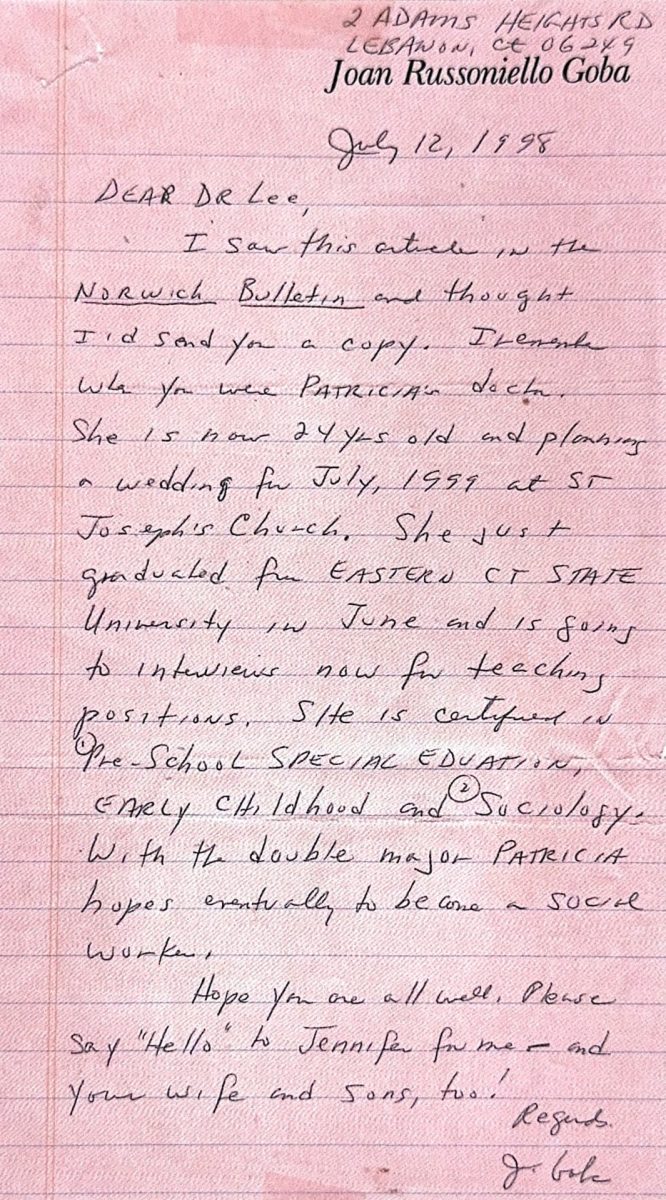 2 ADAMS HEIGHTS RD
LEBANON, CT 06249
Joan Russoniello Goba
July 12, 1998
DEAR DR Lee,
I saw this article in the
NORWICH Bulletin and thought
I'd send you a copy. I remember
when you were PATRICIA's doctor.
She is now 24 yrs old and planning
a wedding for July, 1999 at ST
Joseph's Church. She just
graduated from EASTERN CT STATE
University in June and is going
to interviews now for teaching
positions. SHe is certified in
① Pre-School SPECIAL EDUATION,
EARLY CHildhood and ② Sociology.
With the double major PATRICIA
hopes eventually to become a social
worker.
Hope you are all well. Please
say "Hello" to Jennifer for me - and
your wife and sons, too!
Regards.
J. Goba